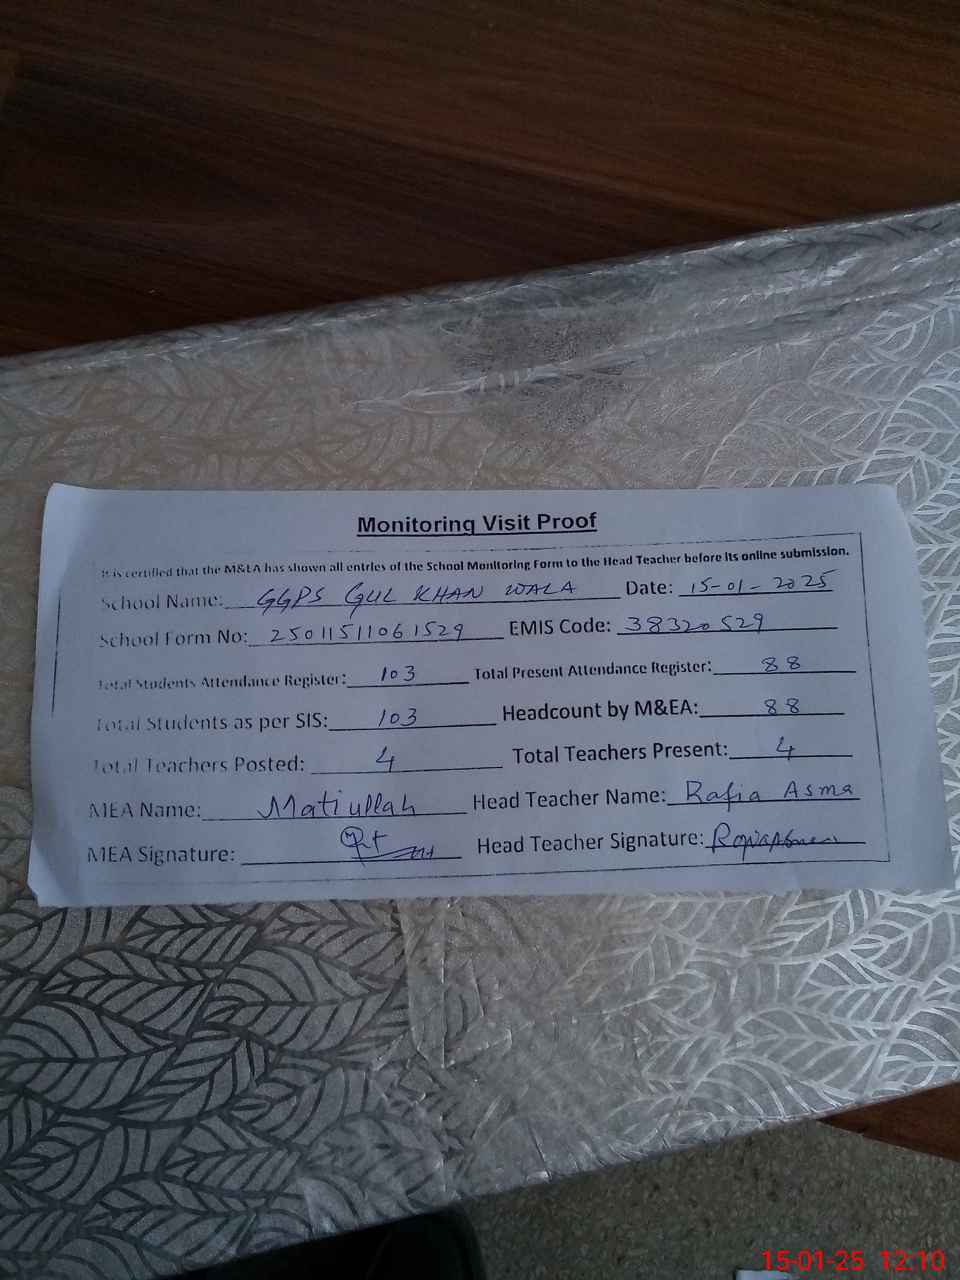 Monitoring Visit Proof
It is certified that the M&EA has shown all entries of the School Monitoring Form to the Head Teacher before its online submission.
School Name: GGPS GUL KHAN WALA Date: 15-01-2025
School Form No: 25011511061529 EMIS Code: 38320529
Total Students Attendance Register: 103 Total Present Attendance Register: 88
Total Students as per SIS: 103 Headcount by M&EA: 88
Total Teachers Posted: 4 Total Teachers Present: 4
MEA Name: Matiullah Head Teacher Name: Rafia Asma
MEA Signature: Head Teacher Signature:
15-01-25 12:10